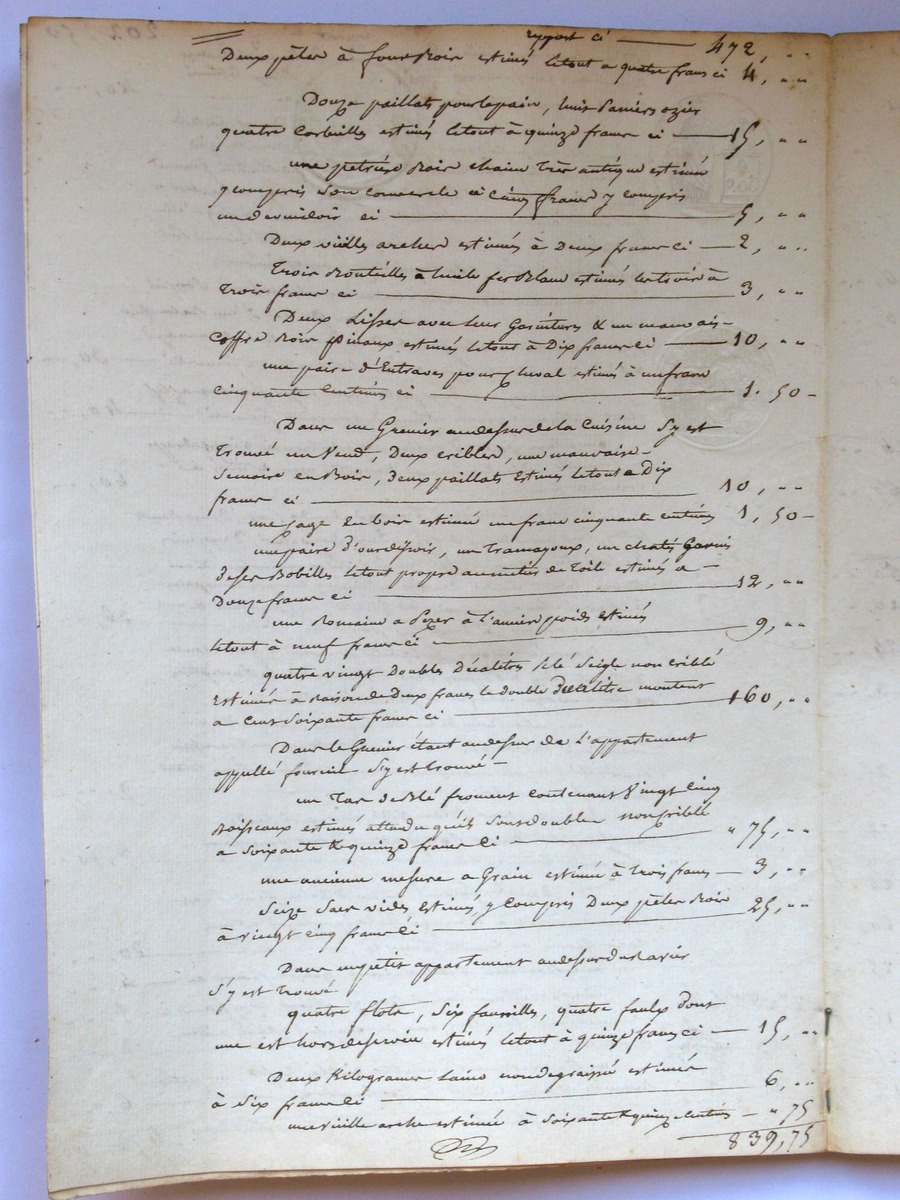 report ci 472, " "
Deux pèles à four Bois estimés letout a quatre francs ci 4, " "
Douze paillats pour le pain, huit Paniers ozier
quatre Corbeilles estimés letout à quinze francs ci 15, " "
une petriere Bois chaine très antique estimé
y compris son couvercle à Cinq francs y compris
un devuidoir ci 5, " "
Deux vieilles arches estimés à Deux francs ci 2, " "
Trois Bouteilles à huile fer Blanc estimés les trois à
Trois francs ci 3, " "
Deux Lisses avec leur Garnitures & un mauvais
Coffre Bois estimés letout à Dix francs ci 10, " "
une paire d'Entraves pour Cheval estimés à un franc
cinquante Centimes ci 1. 50
Dans un Grenier au dessus de la Cuisine S'y est
Trouvé un Vend, Deux cribles, une mauvaise
en Bois, deux paillats Estimés letout a Dix
francs ci 10, " "
une en bois estimé un franc cinquante centimes 1, 50
une paire d'ourdissoir, un Tramayoux, un Garnis
de ses Bobilles letout propre au métier de Toile estimés a
Douze francs ci 12, " "
une Romaine a Pezer à l'ancien poids Estimés
letout à neuf francs ci 9, " "
quatre vingt Doubles Décalitres Blé Seigle non criblé
Estimés à Raison de Deux francs le double Décalitre montent
a Cent Soixante francs ci 160, " "
Dans le Grenier étant au dessus de L'appartement
appellé fournil S'y est trouvé
un Tas de Blé froment Contenant Vingt Cinq
Boisseaux estimés attendu qu'ils sont doubles non criblé
a Soixante & quinze francs Ci " 75, " "
une ancienne mesure a Grain estimée à trois francs 3, " "
Seize Sacs vides Estimés y Compris Deux pèles Bois
à vingt cinq francs Ci 25, " "
Dans un petit appartement au dessus
S'y est Trouvé
quatre flots, Six faucilles, quatre faulx Dont
une est hors de service estimés letout à quinze francs ci 15, " "
Deux Kilogrames Laine non degraissé estimée
à Six francs Ci 6, " "
une vieille arche estimée à Soixante & quinze Centimes " 75
839, 75